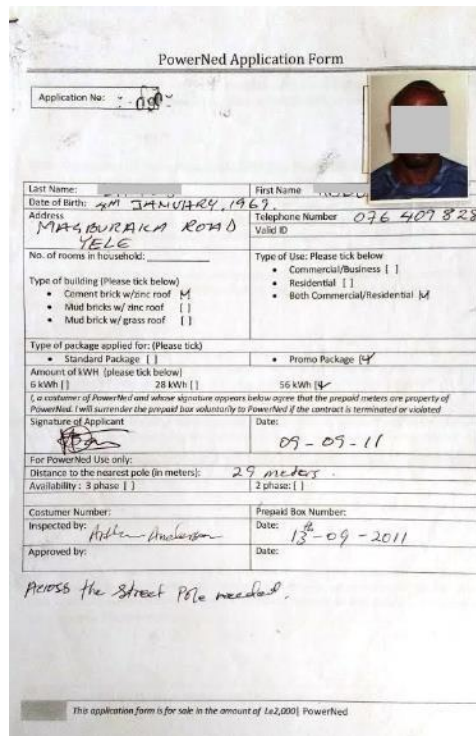 PowerNed Application Form
Application No:
Last Name:
First Name
Date of Birth: 4TH JANUARY, 1969.
Address
MAGBURAKA ROAD
YELE
Telephone Number 076 409 828
Valid ID
No. of rooms in household:
Type of building (Please tick below)
• Cement brick w/zinc roof [ ]
• Mud bricks w/ zinc roof [ ]
• Mud brick w/ grass roof [ ]
Type of Use: Please tick below
• Commercial/Business [ ]
• Residential [ ]
• Both Commercial/Residential [ ]
Type of package applied for: (Please tick)
• Standard Package [ ]
• Promo Package [ ]
Amount of kWH (please tick below)
6 kWh [ ] 28 kWh [ ] 56 kWh [ ]
I, a costumer of PowerNed and whose signature appears below agree that the prepaid meters are property of
PowerNed. I will surrender the prepaid box voluntarily to PowerNed if the contract is terminated or violated
Signature of Applicant
Date:
09-09-11
For PowerNed Use only:
Distance to the nearest pole (in meters): 29 meters.
Availability: 3 phase [ ] 2 phase: [ ]
Costumer Number:
Prepaid Box Number:
Inspected by: Anderson
Date: 13th-09-2011
Approved by:
Date:
Across the street Pole needed.
This application form is for sale in the amount of Le2,000| PowerNed